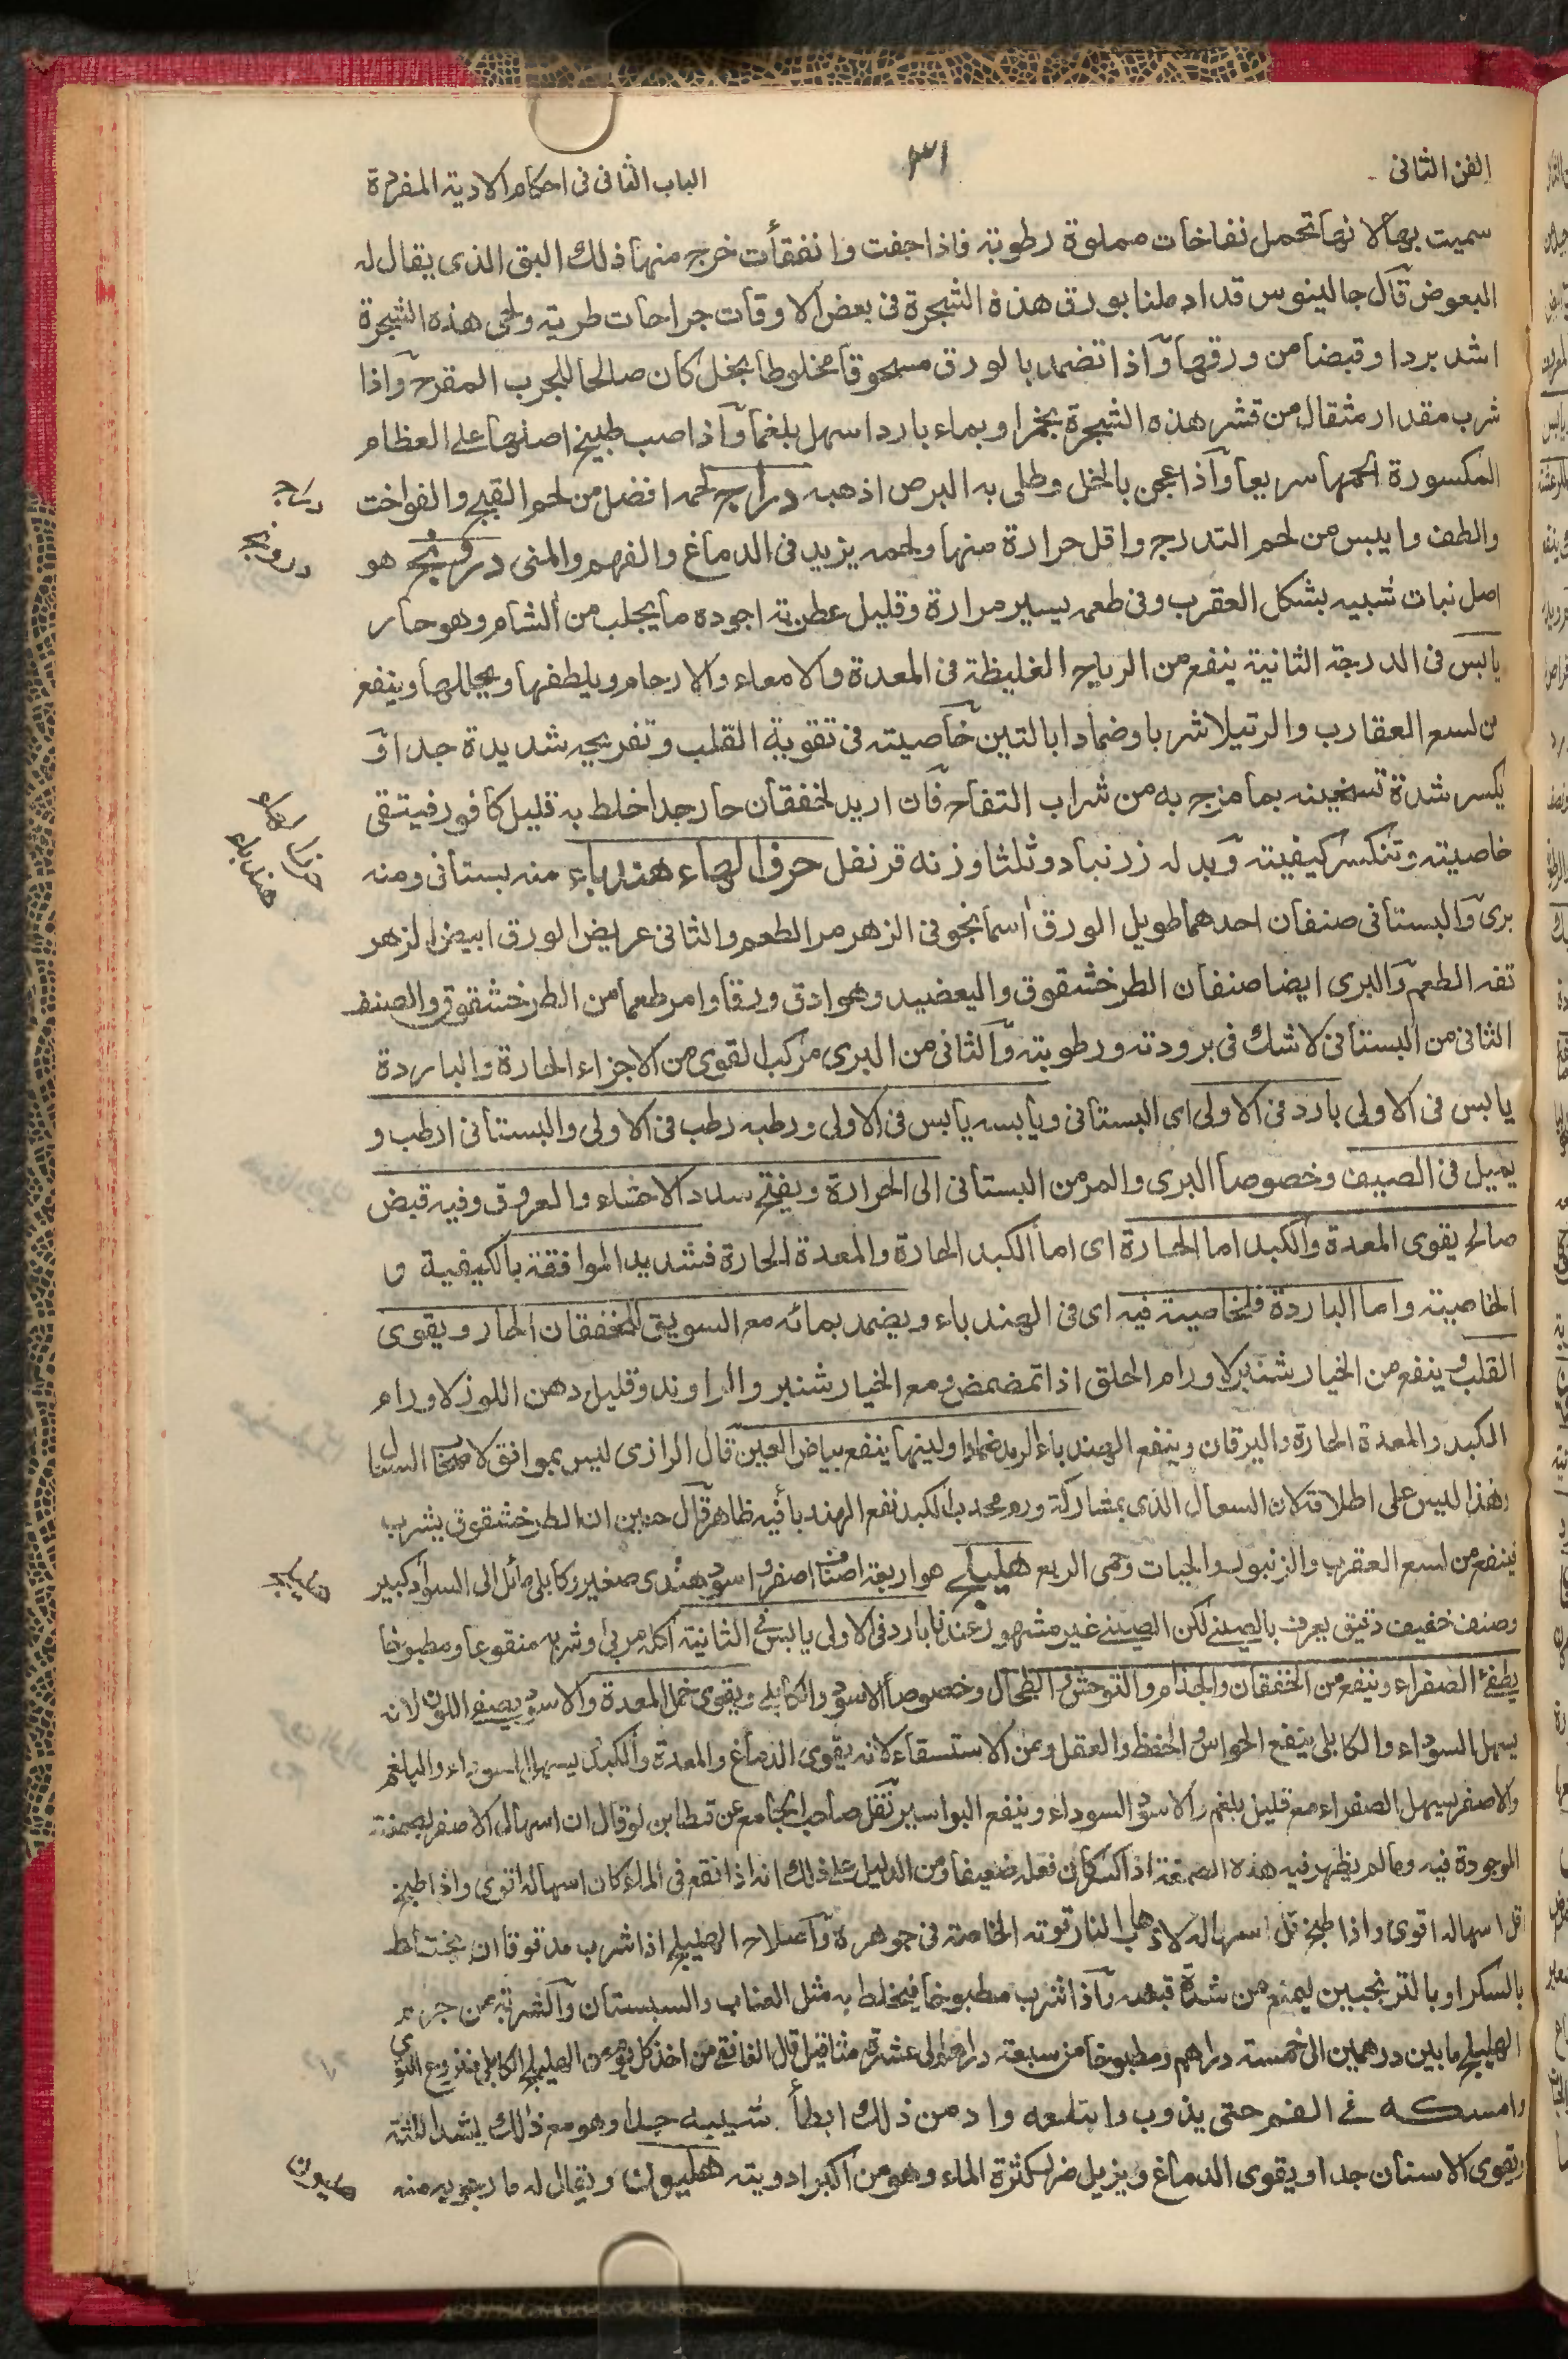 الفن الثانى
٣١
الباب الثانى فى احكام الادوية المفردة
سميت بها لانها تحمل نفاخات مملوة رطوبة فاذا جفت وانفقأت خرج منها ذلك البق الذى يقال له
البعوض قال جالينوس قد ادملنا بورق هذه الشجرة فى بعض الاوقات جراحات طرية ولحى هذه الشجرة
اشد بردا وقبضا من ورقها واذا تضمد بالورق مسحوقا مخلوطا بخل كان صالحا للجرب المقرح واذا
شرب مقدار مثقال من قشر هذه الشجرة بخمر او بماء بارد اسهل بلغما واذا صب طبيخ اصلها على العظام
المكسورة الحمها سريعا واذا عجن بالخل وطلى به البرص اذهبه دراج لحمه افضل من لحم القبج والفواخت
والطف وايبس من لحم التدرج واقل حرارة منها ولحمه يزيد فى الدماغ والفهم والمنى درونج هو
اصل نبات شبيه بشكل العقرب وفى طعمه يسير مرارة وقليل عطرية اجوده ما يجلب من الشام وهو حار
يابس فى الدرجة الثانية ينفع من الرياح الغليظة فى المعدة والامعاء والارحام ويلطفها ويحللها وينفع
من لسع العقارب والرتيلا شربا وضمادا بالتين خاصيته فى تقوية القلب وتفريحه شديدة جدا و
يكسر شدة تسخينه بما مزج به من شراب التفاح فان اريد لخفقان حار جدا خلط به قليل كافور فيتقى
خاصيته وتنكسر كيفيته وبدله زرنباد وثلثا وزنه قرنفل حرف الهاء هندباء منه بستانى ومنه
برى والبستانى صنفان احدهما طويل الورق اسمانجونى الزهر مر الطعم والثانى عريض الورق ابيض الزهر
تفه الطعم والبرى ايضا صنفان الطرخشقوق واليعضيد وهو ادق ورقا وامر طعما من الطرخشقوق والصنف
الثانى من البستانى لاشك فى برودته ورطوبته والثانى من البرى مركب القوى من الاجزاء الحارة والباردة
يابس فى الاولى بارد فى الاولى اى البستانى ويابسه يابس فى الاولى ورطبه رطب فى الاولى والبستانى ارطب و
يميل فى الصيف وخصوصا البرى والمر من البستانى الى الحرارة ويفتح سدد الاحشاء والعروق وفيه قبض
صالح يقوى المعدة والكبد اما الحارة اى اما الكبد الحارة والمعدة الحارة فشديد الموافقة بالكيفية و
الخاصية واما الباردة فلخاصية فيه اى فى الهندباء ويضمد بمائه مع السويق للخفقان الحار ويقوى
القلب وينفع من الخيار شنبر لاورام الحلق اذا تمضمض ومع الخيار شنبر والراوند وقليل دهن اللوز لاورام
الكبد والمعدة الحارة واليرقان وينفع الهندباء الرمد ضمادا ولبنها ينفع بياض العين قال الرازى ليس بموافق لاصحاب السعال
وهذا ليس على اطلاقه لان السعال الذى بمشاركة ورم محدب الكبد نفع الهندبا فيه ظاهر قال حنين ان الطرخشقوق يشرب
فينفع من لسع العقرب والزنبور والحيات وحمى الربع هليلج هو اربعة اصناف اصفر واسود هندى صغير وكابلى مائل الى السواد كبير
وصنف خفيف دقيق يعرف بالصينى لكن الصينى غير مشهور عندنا بارد فى الاولى يابس فى الثانية اكله مربى وشربه منقوعا ومطبوخا
يطفئ الصفراء وينفع من الخفقان والجذام والتوحش والطحال وخصوصا الاسود والكابلى ويقوى خمل المعدة والاسود يصفى اللون لانه
يسهل السوداء والكابلى ينفع الحواس والحفظ والعقل ومن الاستسقاء لانه يقوى الدماغ والمعدة والكبد ليسهل السوداء والبلغم
والاصفر يسهل الصفراء مع قليل بلغم والاسود السوداء وينفع البواسير نقل صاحب الجامع عن قسطا بن لوقا ان اسهال الاصفر لصمغة
الموجودة فيه وما لم يظهر فيه هذه الصمغة اذا كسر كان فعله ضعيفا ومن الدليل على ذلك انه اذا نقع فى الماء كان اسهاله اقوى واذا طبخ
قل اسهاله اقوى واذا طبخ قل اسهاله لاذهاب النار قوته الخاصة فى جوهره واصلاح الهليلج اذا شرب مدقوقا ان يختلط
بالسكر او بالترنجبين ليمنع من شدة قبضه واذا شرب مطبوخا فيخلط به مثل العناب والسبستان والشربة من جرمه
الهليلج ما بين درهمين الى خمسة دراهم ومطبوخا من سبعة دراهم الى عشرة مثاقيل قال الغافقى من اخذ كل يوم من الهليلج الكابلى منزوع النوى
وامسكه فى الفم حتى يذوب وابتلعه وادمن ذلك ابطأ شيبه جدا وهو مع ذلك يشد اللثة
ويقوى الاسنان جدا ويقوى الدماغ ويزيل ضرر كثرة الماء وهو من اكبر ادويته هليون ويقال له مارجويه منه
دراج
درونج
حرف الهاء
هندباء
هليلج
هليون